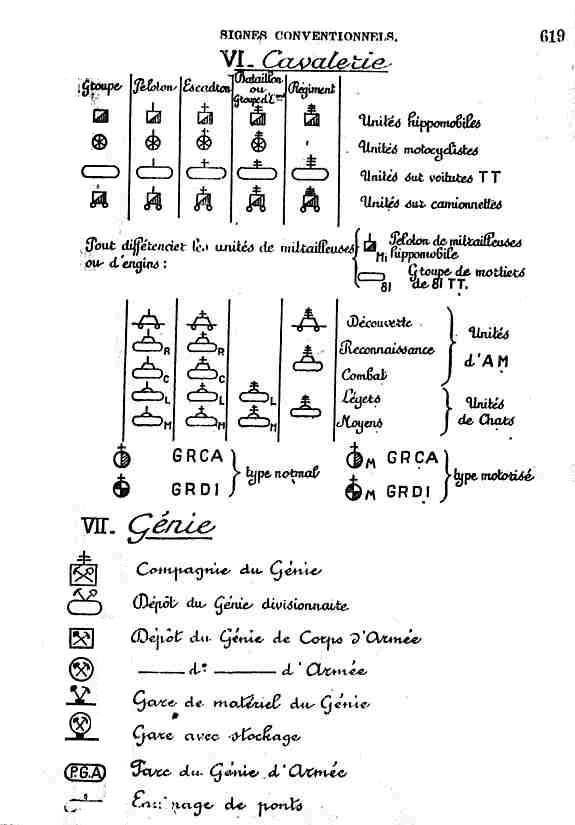 SIGNES CONVENTIONNELS. 619
VI. Cavalerie
Groupe Peloton Escadron Bataillon ou Groupe d'Eons Régiment
Unités hippomobiles
Unités motocyclistes
Unités sur voitures TT
Unités sur camionnettes
Pour différencier les unités de mitrailleuses
ou d'engins :
Mi Peloton de mitrailleuses
hippomobile
81 Groupe de mortiers
de 81 TT.
Découverte
R R Reconnaissance
C C Combat
Unités
d'AM
L L L Légers
M M M Moyens
Unités
de Chars
GRCA
GRDI
type normal
M GRCA
M GRDI
type motorisé
VII. Génie
Compagnie du Génie
Dépôt du Génie divisionnaire
Dépôt du Génie de Corps d'Armée
d° d'Armée
Gare de matériel du Génie
Gare avec stockage
P.G.A Parc du Génie d'Armée
de ponts